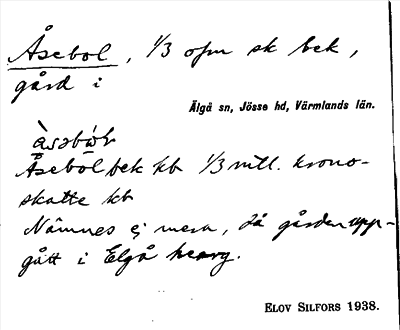 Åsebol, 1/3 ofm sk bek,
gård i
Älgå sn, Jösse hd, Värmlands län.
Åsebol bek kb 1/3 mtl. krono-
skatte kb
Nämnes ej mera, då gården upp-
gått i Elgå herrg.
ELOV SILFORS 1938.